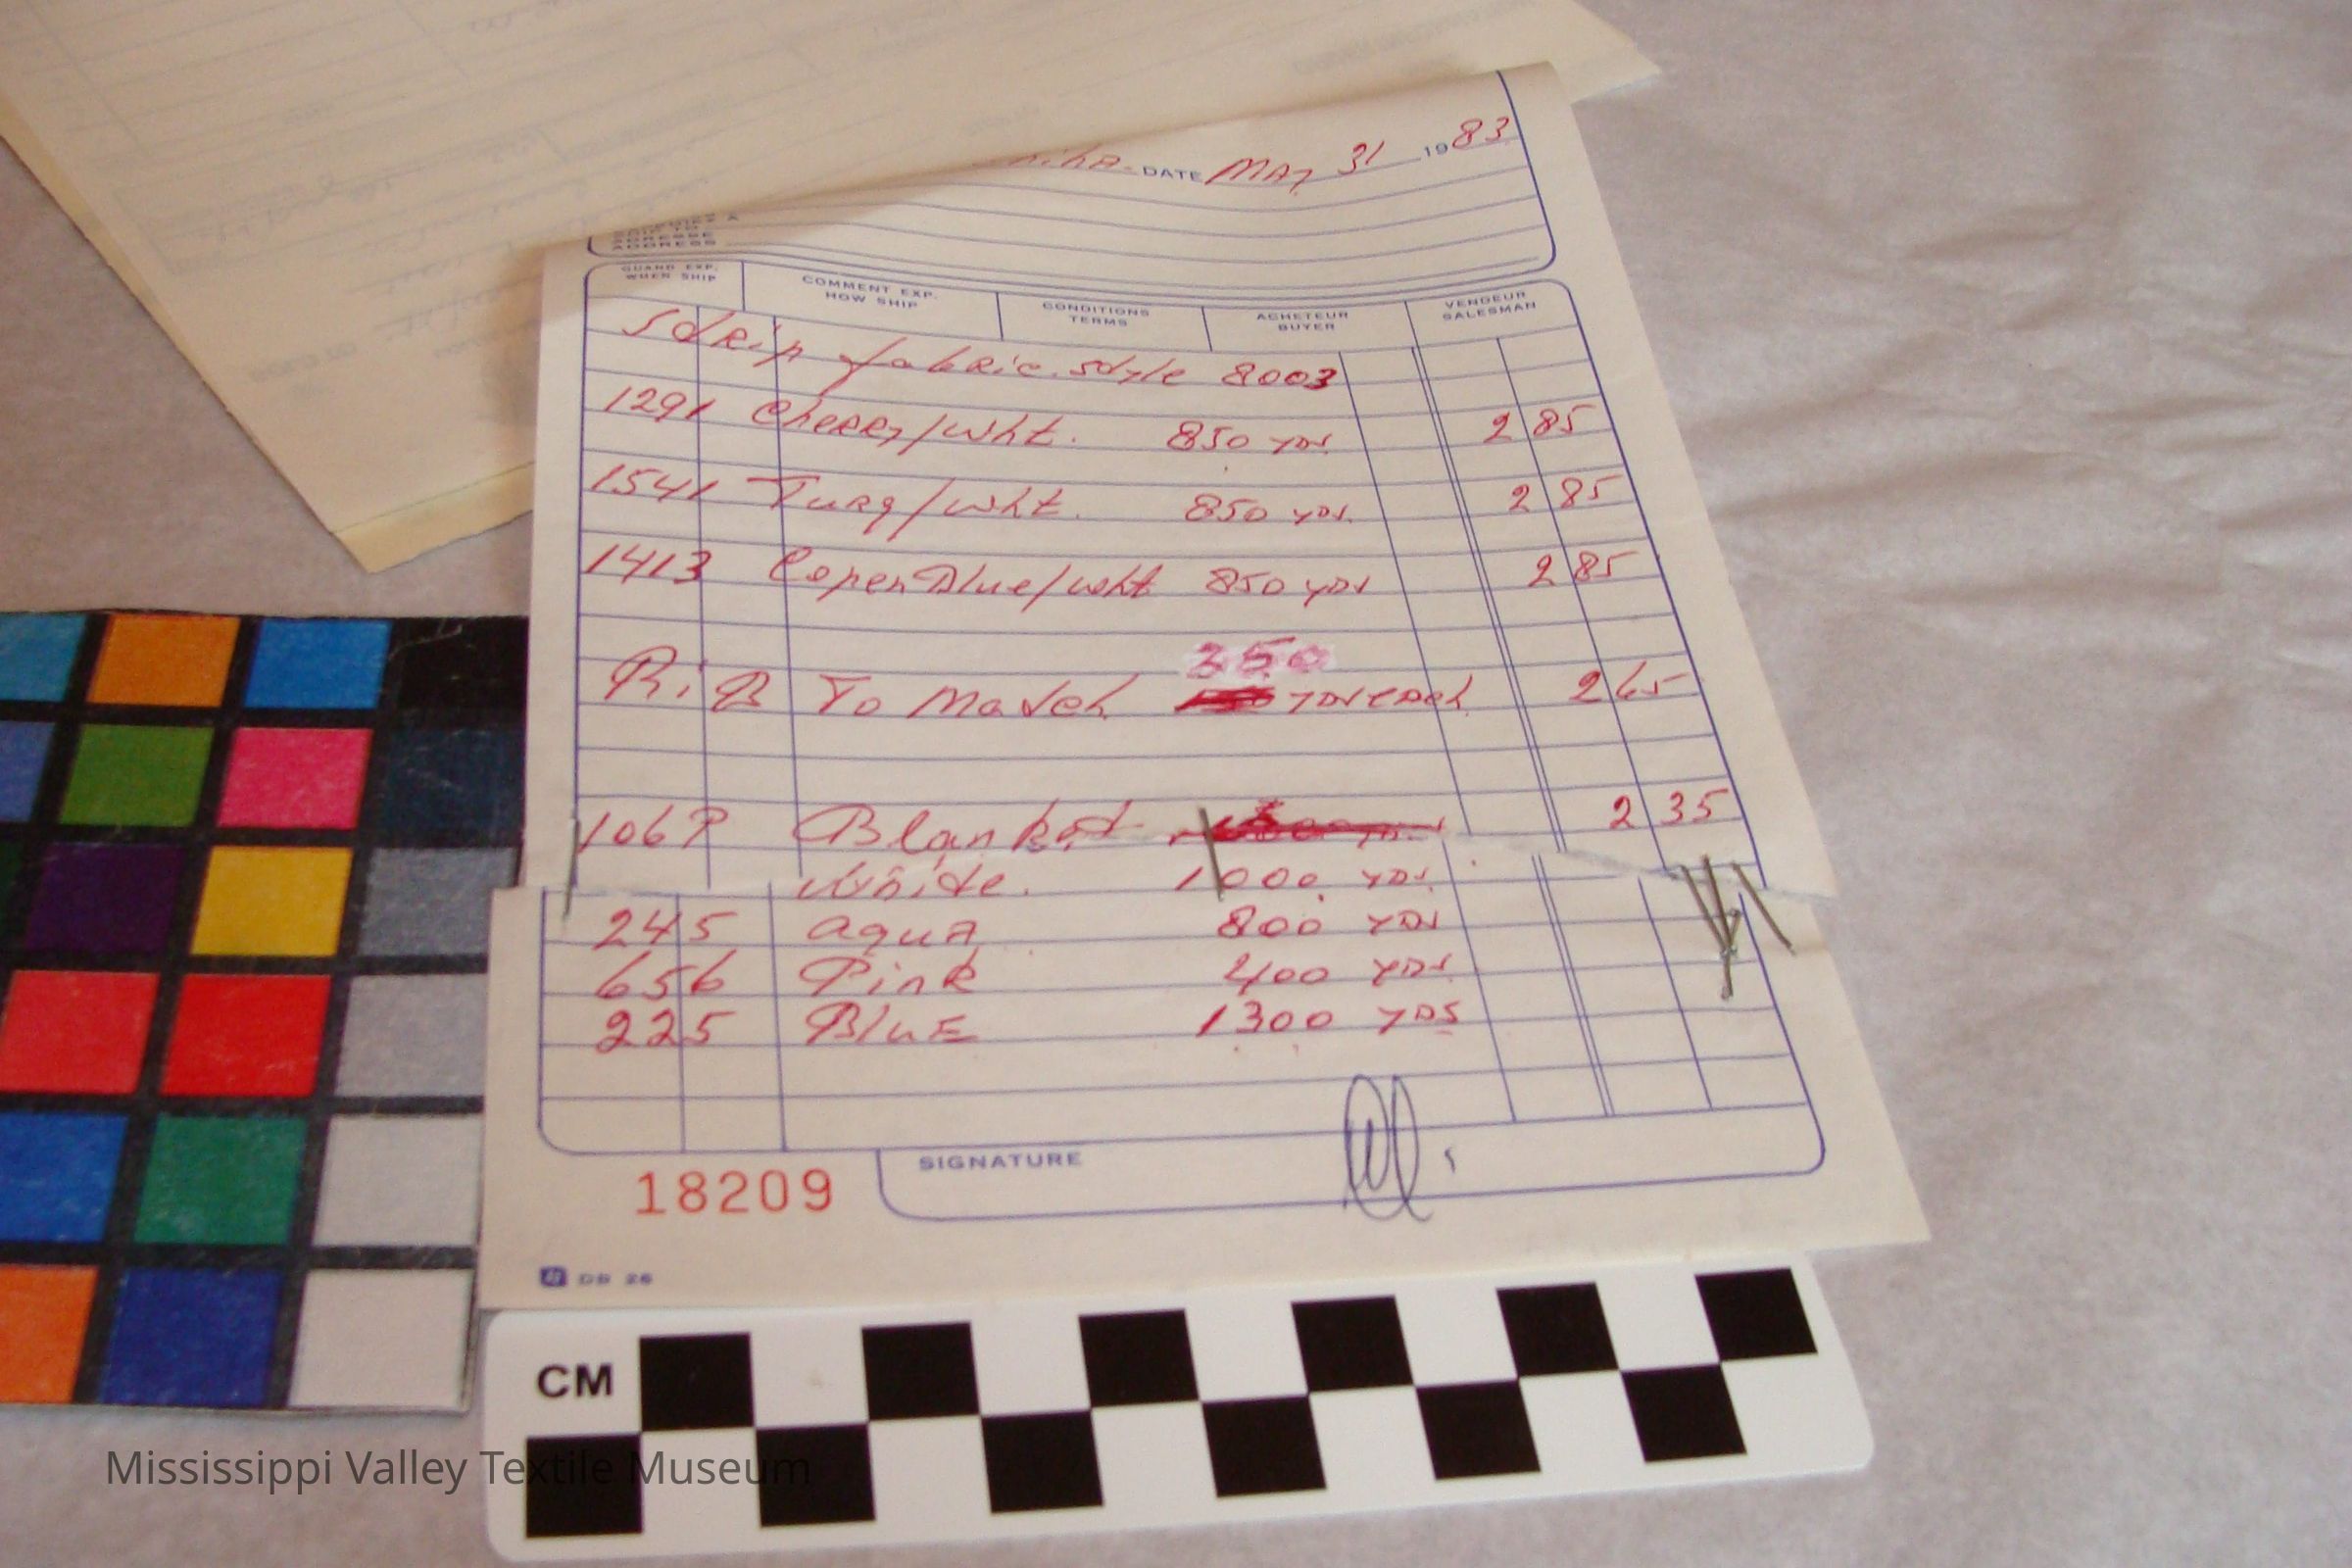 DATE May 31 1983
ADRESSE
ADDRESS
QUAND EXP.
WHEN SHIP
COMMENT EXP.
HOW SHIP
CONDITIONS
TERMS
ACHETEUR
BUYER
VENDEUR
SALESMAN
Strip fabric style 8003
1291 Cherry/Wht. 850 yds 2 85
1541 Turq/Wht. 850 yds. 2 85
1413 Copen Blue/Wht 850 yds 2 85
350
Rib To Match yds each 2 65
Blanket 2 35
White. 1000 yds.
245 aqua 800 yds
656 Pink 400 yds.
225 Blue 1300 yds
SIGNATURE
18209
DB 26
CM
Mississippi Valley Textile Museum